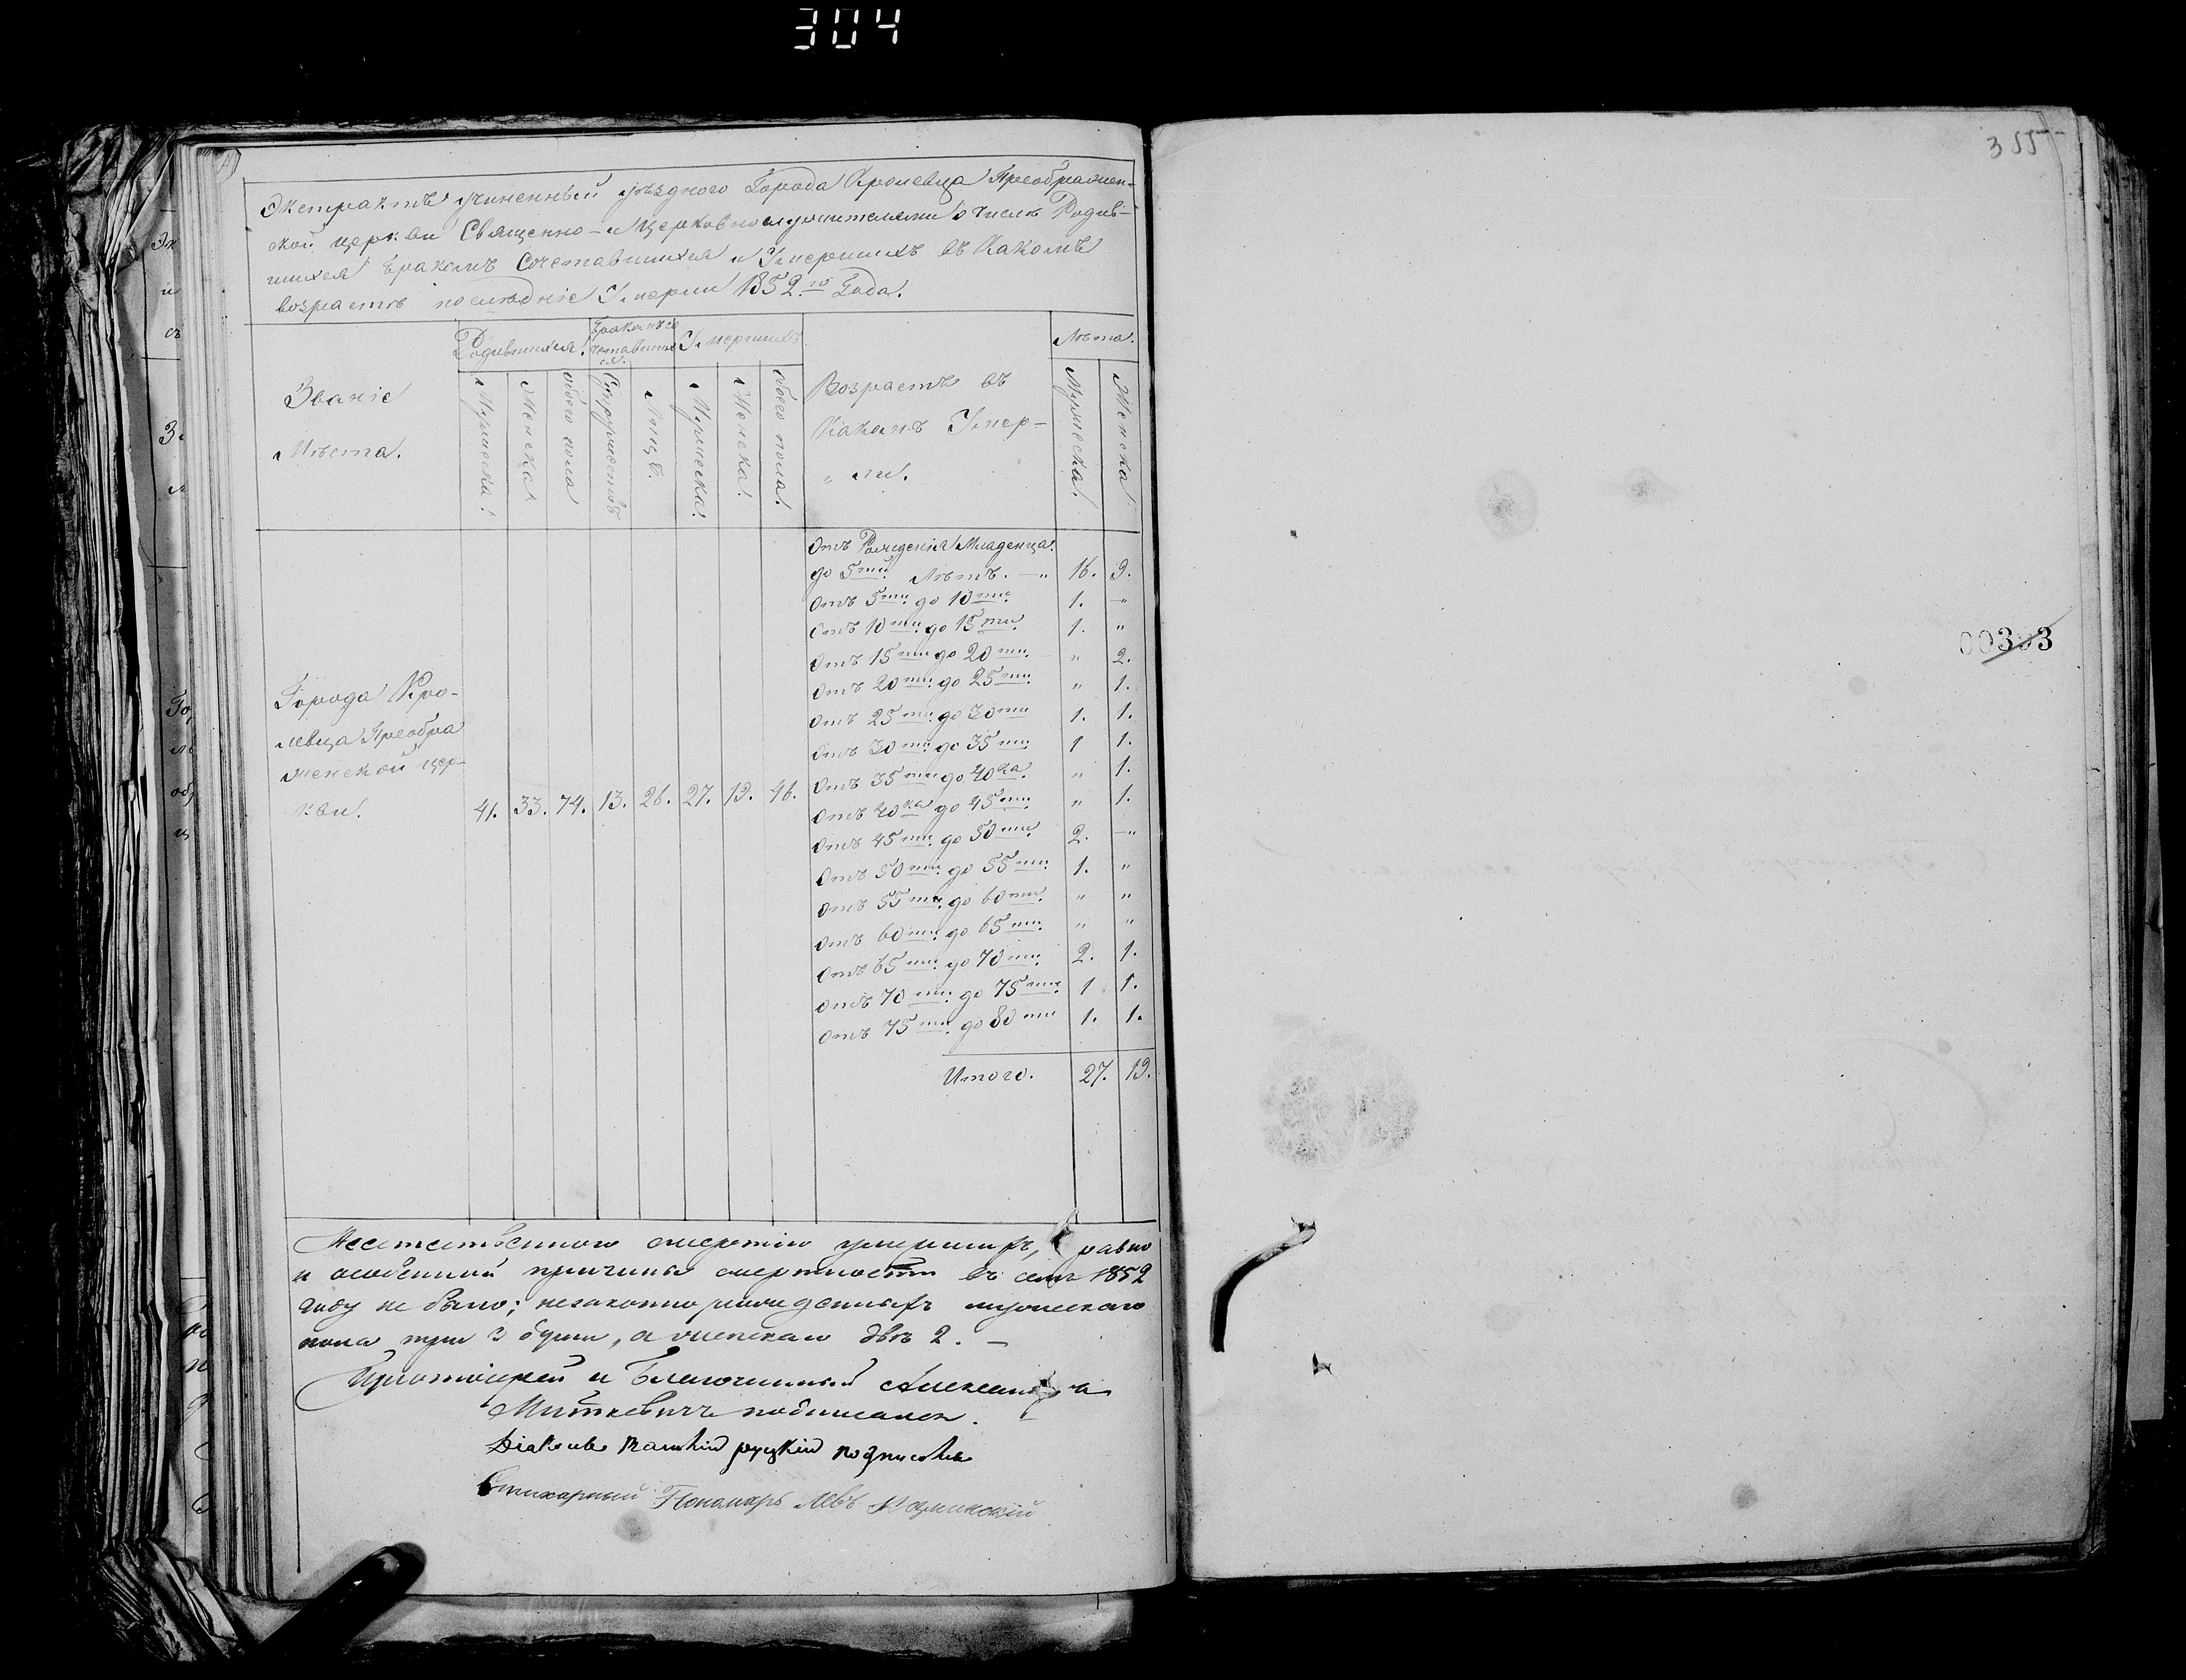 304
355
Экстрактъ учиненный уѣзднаго Города Кролевца Преображен-
ской церкви Священно- и церковнослужителями о числѣ Родив-
шихся бракомъ Сочетавшихся и Умершихъ въ Какомъ
возрастѣ послѣдніе Умерли 1852.го Года.
Званіе
Мѣста.
Родившихся.
Бракомъ со
четавших
ся.
Умершихъ
Возрастъ въ
Какомъ Умер-
" ли.
Лѣта.
Мужеска.
Женска
обоего пола
Супружествъ
Лицъ.
Мужеска.
Женска.
обоего пола.
Мужеска.
Женска
Отъ Рожденія Младенца.
до 5ти Лѣтъ. — " 16. 9.
Отъ 5ти до 10ти 1. "
Отъ 10ти до 15ти 1. "
Отъ 15ти до 20ти " 2.
Отъ 20ти до 25ти " 1.
Отъ 25ти до 30ти 1. 1.
Отъ 30ти до 35ти 1 1.
Отъ 35ти до 40ка " 1.
Отъ 40ка до 45ти " 1.
Отъ 45ти до 50ти 2. "
Отъ 50ти до 55ти 1. "
Отъ 55ти до 60ти " "
Отъ 60ти до 65ти " "
Отъ 65ти до 70ти 2. 1.
Отъ 70ти до 75ти 1 1.
Отъ 75ти до 80ти 1. 1.
Итого. 27. 19.
Города Кро-
левца Преобра
женской цер-
кви.
41. 33. 74. 13. 26. 27. 19. 46.
Неестественною смертію умершихъ, равно
и особенной причины смертности въ семъ 1852
году не было; незаконно рожденныхъ мужескаго
пола три 3 души, а женскаго двѣ 2. —
Протоіерей и Благочинный Александръ
Миткевичъ подписался.
Діаконъ руцкій подписалъ
Стихарный Пономарь Левъ
00303